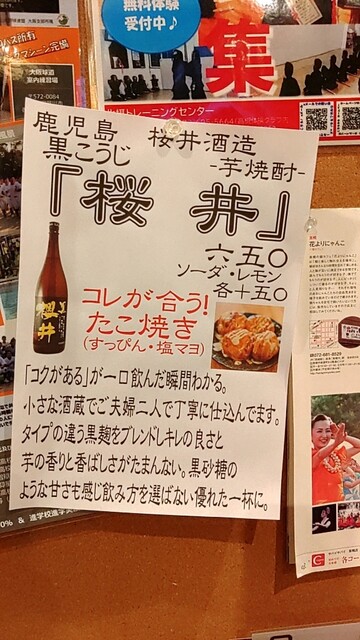 無料体験
受付中♪
集
大阪球道
案内練習場
〒572-0084
トレーニングセンター
鹿児島 桜井酒造
黒こうじ -芋焼酎-
「桜井」
六五〇
ソーダ・レモン
各十五〇
桜井
コレが合う!
たこ焼き
(すっぴん・塩マヨ)
「コクがある」が一口飲んだ瞬間わかる。
小さな酒蔵でご夫婦二人で丁寧に仕込んでます。
タイプの違う黒麹をブレンドしキレの良さと
芋の香りと香ばしさがたまんない。黒砂糖の
ような甘さも感じ飲み方を選ばない優れた一杯に。
花よりにゃんこ